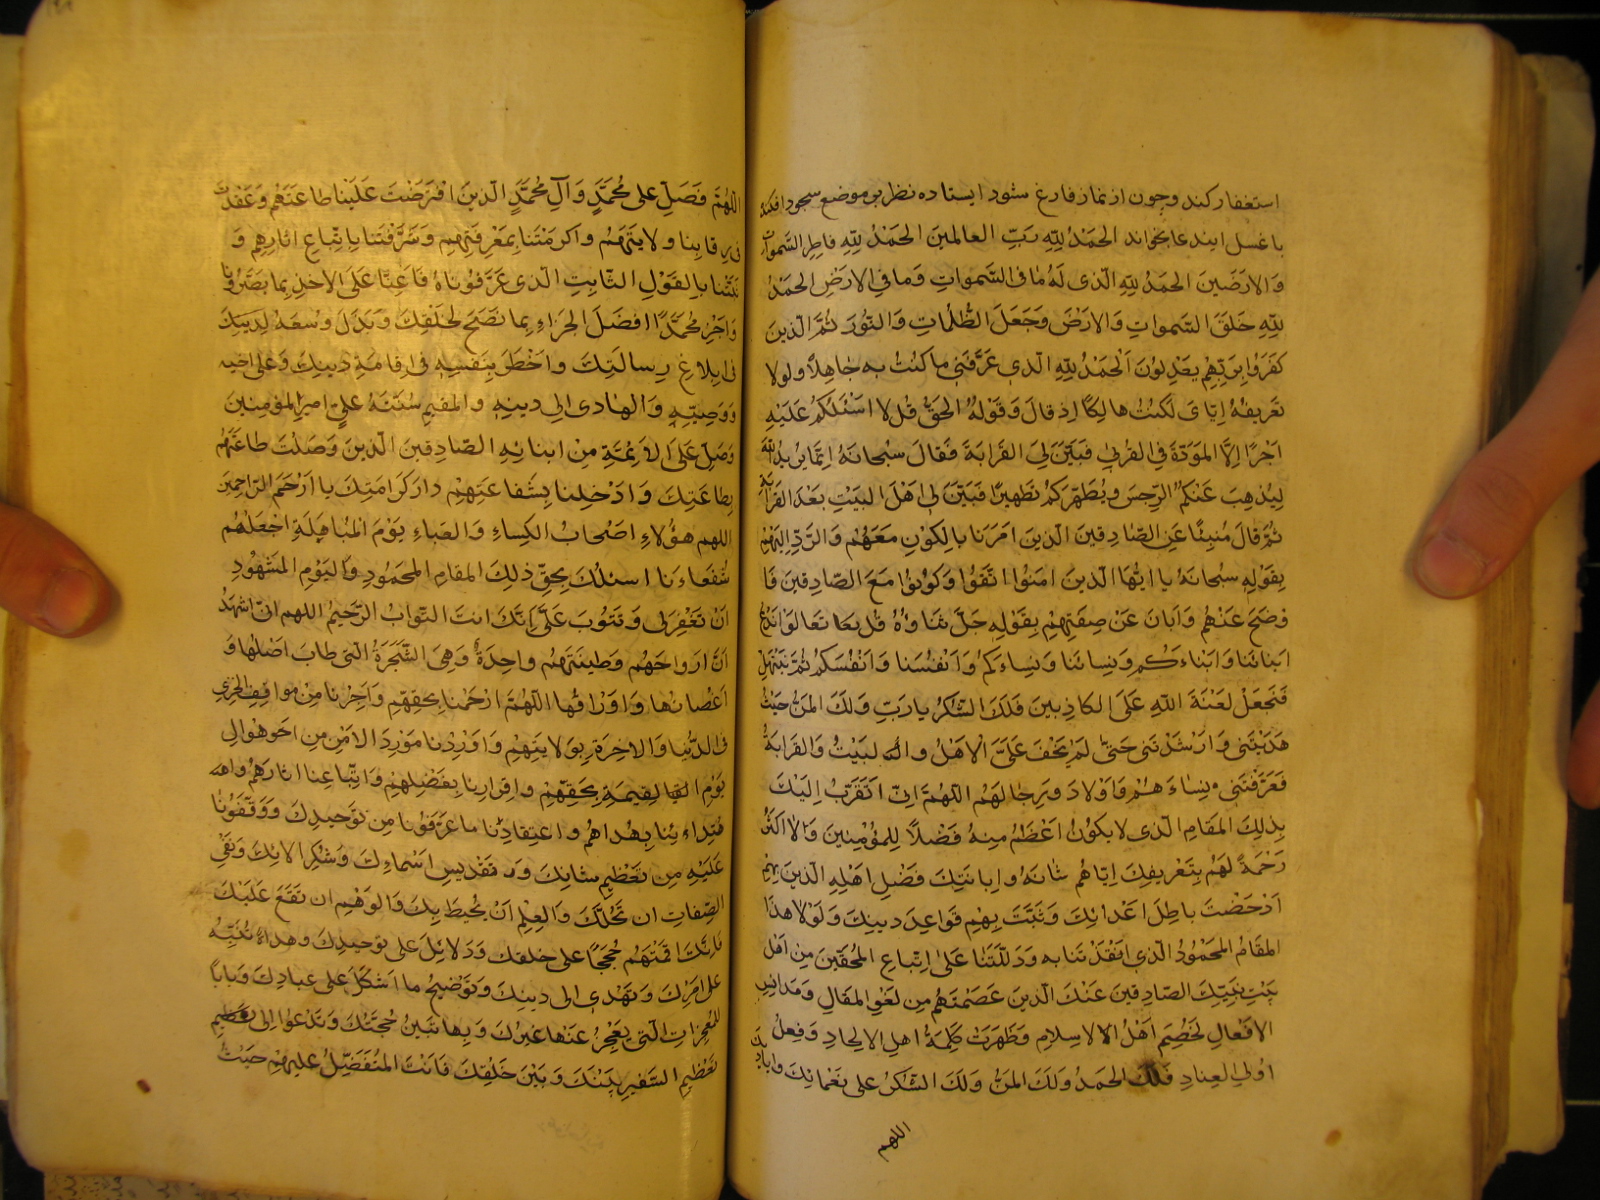 استغفار کند و چون از نماز فارغ شود ایستاده نظر بر موضع سجود افکند
با غسل ایند عا بخواند الحَمدُ لِلّهِ رَبِّ العالمینَ الحَمدُ لِلّهِ فاطِرِ السَّمواتِ
وَالارَضینَ الحَمدُ لِلّهِ الَّذی لَهُ مٰا فی السَّمواتِ وَما فی الارضِ الحَمدُ
لِلّهِ خَلَقَ السَّمواتِ وَالارضَ وَجَعَلَ الظُّلُماتِ وَالنُّورَ ثُمَّ الَّذینَ
کَفَرُوا بِرَبِّهِم یَعدِلوُنَ اَلحَمدُ لِلّهِ الَّذی عَرَّفَنی ما کُنتُ بِه جٰاهِلاً ولولا
تَعریفُهُ اِیّایَ لَکُنتُ هالِکًا اِذ قالَ وَقَولُهُ الحَقُّ قُل لا اَسئَلُکُم عَلَیهِ
اَجرًا اِلاَّ المَوَدَّةَ فِی القُربی فَبَیَّنَ لِیَ القَرابَةَ فَقالَ سُبحانَهُ اِنَّما یُریدُ اللّهُ
لِیُذهِبَ عَنکُم الرِّجسَ وَیُطَهِّرَکُم تَطهیرًا فَبَیَّنَ لی اَهلَ البَیتِ بَعدَ القَرابَةِ
ثُمَّ قالَ مُنبِئًا عَنِ الصّٰادِقینَ الَّذینَ اَمَرَنا بِالکَونِ مَعَهُم وَالرَّدِّ اِلَیهِم
بِقَولِهِ سُبحانَهُ یا اَیُّهَا الَّذینَ امَنُوا اتَّقُوا وَکُونُوا مَعَ الصّادِقینَ فَا
وضَحَ عَنهُم وَاَبانَ عَن صِفَتِهِم بِقَولِهِ جَلَّ ثَناؤهُ قُل تَعٰا تَعالَوا نَدعُ
اَبنائَنا وَاَبناءَکُم وَنِسائَنا وَنِساءَکُم وَاَنفُسَنا وَاَنفُسَکُم ثُمَّ نَبتَهِل
فَنَجعَل لَعنَةَ اللّهِ عَلَی الکاذِبینَ فَلَکَ الشُّکرُ یارَبِّ وَلَکَ المَنُّ حَیثُ
هَدَیتَنی وَاَرشَدتَنی حَتّی لَم یَخفَ عَلَیَّ الاَهلُ و البَیتُ وَالقَرابَةُ
فَعَرَّفتَنی نِساءَهُم وَاَولادَ وَرِجالَهُم اللّهُمَّ اِنّی اَتَقَرَّبُ اِلَیکَ
بِذلِکَ المَقامِ الَّذی لا یکونُ اَعظَمُ مِنهُ فَضلاً لِلمُؤمِنینَ وَلا اَکثَرُ
رَحمَةً لَهُم بِتَعریفِکَ اِیّاهُم شَانَهُ وَاِبانَتِکَ فَضلَ اَهلِهِ الَّذینَ بِهِم
اَدحَضتَ باطِلَ اَعدائِکَ وَثَبَّتَ بِهِم قَواعِدَ دینِکَ وَلَولا هذَا
المَقامُ المَحمُودُ الَّذی اَنقَذتَنا بِه وَدَلَلتَنا عَلَی اِتِّباعِ المُحِقّینَ مِن اَهلِ
بَیتِ نَبِیِّکَ الصّادِقینَ عَنکَ الَّذینَ عَصَمتَهُم مِن لَغوِ المَقالِ وَمَدانِسِ
الاَفعالِ لَخُصِمَ اَهلُ الاسلامِ وَظَهَرَت کَلِمَةُ اهلِ الاِلحادِ وَفِعلُ
اُولی العِنادِ فَلَکَ الحَمدُ وَلَکَ المَنُّ وَلَکَ الشُّکرُ عَلی نَعمائِکَ وَایادیکَ
اللهم
اَللّهُمَّ فَصَلِّ عَلی مُحَمَّدٍ وَآلِ مُحَمَّدٍ الَّذینَ افتَرَضتَ عَلَینا طاعَتَهُم وَعَقَدتَ
فی رِقابِنا ولایَتَهُم وَاَکرَمتَنا بِمَعرِفَتِهِم وَشَرَّفتَنا بِاِتِّباعِ اثارِهِم وَ
ثَبَّتنا بِالقَولِ الثّابِتِ الَّذی عَرَّفُوناهُ فَاَعِنّا عَلَی الاَخذِ بِما بَصَّرُونا
وَاجزِ مُحَمَّدًا اَفضَلَ الجَزاءِ بِما نَصَحَ لِخَلقِکَ وَبَذَلَ وُسعَهُ لِدینِکَ
فی اِبلاغِ رِسالَتِکَ واَخطَرَ بِنَفسِهِ فی اِقامَةِ دینِکَ وَعَلی اَخیهِ
وَوَصِیِّهِ وَالهادی اِلی دینِهِ وَالمُقیمِ سُنَّتَهُ عَلِیٍّ امیرِ المؤمِنینَ
وَصَلِّ عَلَی الاَئِمَّةِ مِن اَبنائِهِ الصّادِقینَ الَّذینَ وَصَلتَ طاعَتَهُم
بِطاعَتِکَ وَاَدخِلنا بِشَفاعَتِهِم دارَ کَرامَتِکَ یا اَرحَمَ الرّاحِمینَ
اللهم هؤُلاءِ اَصحابُ الکِساءِ وَالعَباءِ یَومَ المُباهَلَةِ اجعَلهُم
شُفَعاءَنا اَسئلُکَ بِحَقِّ ذلِکَ المَقامِ المَحمُودِ وَالیَومِ المَشهُودِ
اَن تَغفِرَلی وَتَتُوبَ عَلَیَّ اِنَّکَ انتَ التَّوابُ الرَّحیمُ اللهم انّی اَشهَدُ
اَنَّ اَرواحَهُم وَطینَتَهُم واحِدَةٌ وَهِیَ الشَّجَرَةُ الَّتی طابَ اَصلُها وَ
اَغصانُها وَاَوراقُها اللّهُمَّ ارحَمنا بِحَقِّهِم وَاَجِرنا مِن مَواقِفِ الخِزیِ
فی الدُّنیا وَالاخِرَةِ بِوِلایَتِهِم وَاَورِدنا مَورِدَ الامنِ مِن اَحوٰهوالِ
یَومِ القِیمَةِ بِحَقِّهِم وَاِقرارِنا بِفَضلِهِم وَاتِّباعِنا اثارَهُم واهـ
هتِداءِنا بِهُداهُم وَاعتِقادِنا ما عَرَّفُونا مِن تَوحیدِکَ وَوَقَّفُونا
عَلَیهِ مِن تَعظیمِ شانِکَ وَتَقدیسِ اَسماءِکَ وَشُکرِ الائِکَ وَنَفیِ
الصِّفاتِ ان تَحُلَّکَ وَالعِلمِ اَن یُحیطَ بِکَ وَالوَهمِ ان تَقَعَ عَلَیکَ
فَاِنَّکَ اَقَمتَهُم حُجَجًا عَلی خلقِکَ وَدَلائِلَ عَلی تَوحیدِکَ وَهداةً تُنَبِّهُ
عَلی اَمرِکَ وَتَهدی الی دینِکَ وَتَوضیحُ ما اَشکَلَ عَلی عِبادِکَ وَبابًا
لِلمُعجِزاتِ الَّتی یَعجِزُ عَنها غَیرُکَ وَبِها تَبینُ حُجَّتُکَ وَتَدعُوا اِلی تَعظیمِ
السَّفیرِ بَینَکَ وَبَینَ خَلقِکَ فَاَنتَ المُتَفَضِّلُ عَلیهِم حَیثُ